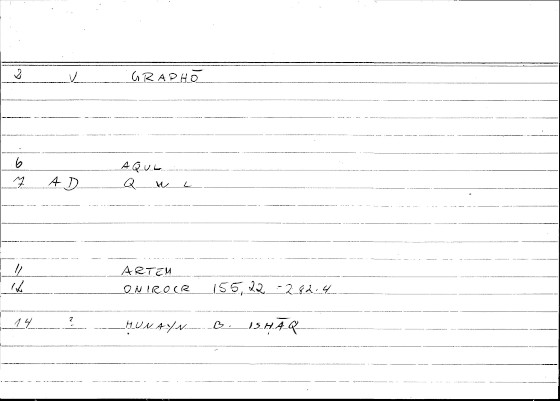 3 V GRAPHŌ
6 AQUL
7 AD Q W L
11 ARTEM
12 ONIROCR 155,22 - 292.4
14 ? ḤUNAYN B. ISḤĀQ